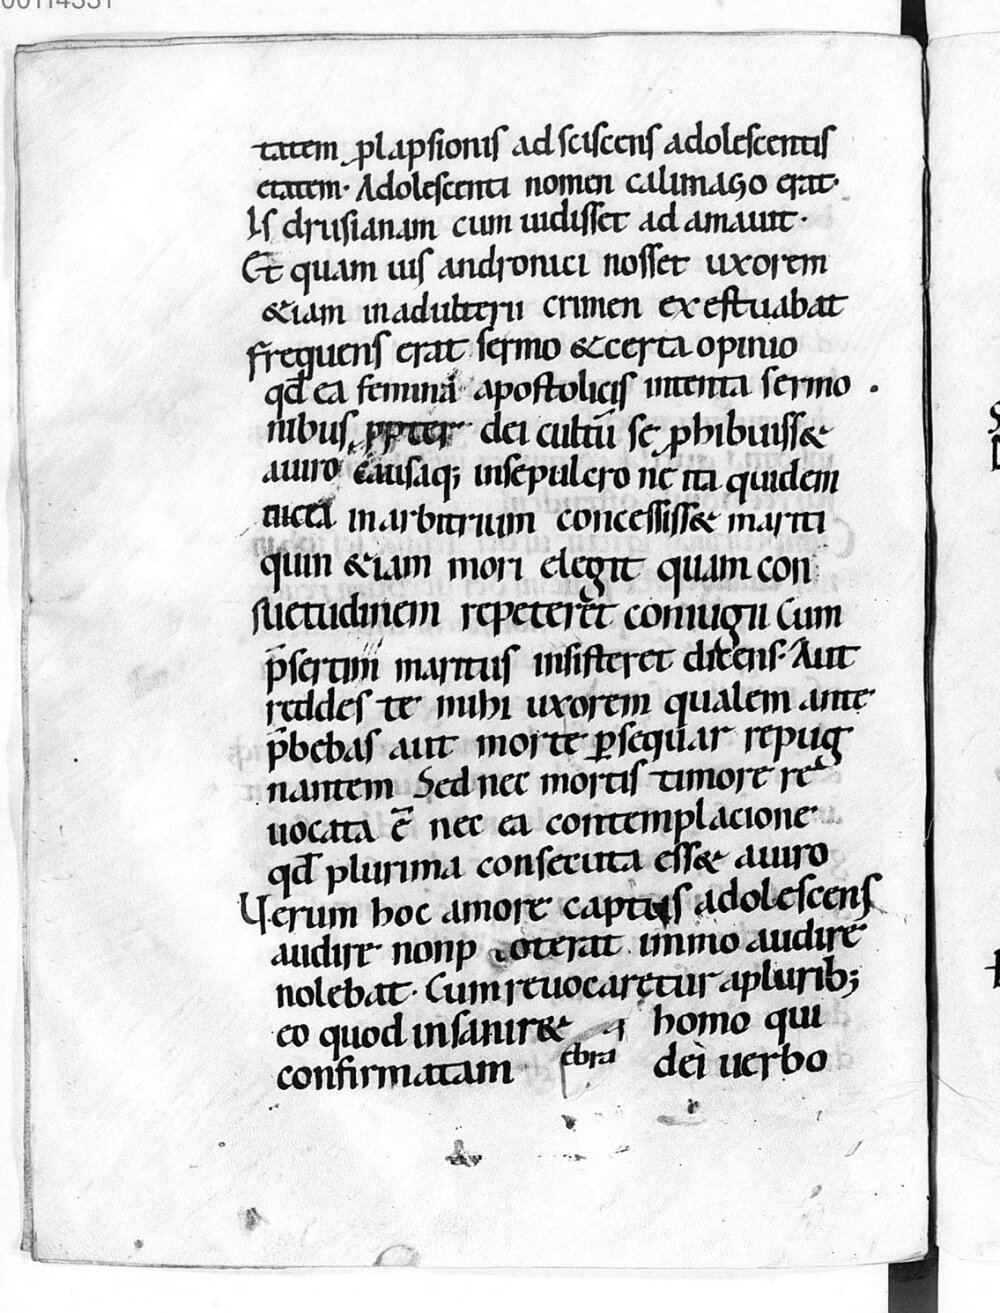 00114331
tatem plapsionis adsciscens adolescentis
etatem· Adolescenti nomen calimago erat·
Is drusianam cum uidisset ad amauit·
Et quam uis andronici nosset uxorem
&iam inadulterii crimen exestuabat
frequens erat sermo &certa opinio
qđ ea femina apostolicis intenta sermo
nibus ppter dei cultū sē phibuiss&
auiro Causaq; insepulcro nē ita quidem
tucta inarbitrium concessiss& mariti
quin &iam mori elegit quam con
suetudinem repeteret coniugii Cum
p̄sertim maritus insisteret dicens· Aut
reddes te mihi uxorem qualem ante
p̄bebas aut morte ꝑsequar repug
nantem Sed nec mortis timore re
uocata ē nec ea contemplacione
qđ plurima consecuta ess& auiro
Verum hoc amore captus adolescens
audire nonp oterat immo audire
nolebat· Cumreuocaretur apluribȝ
eo quod insanir& homo qui
confirmatam ebra dei uerbo